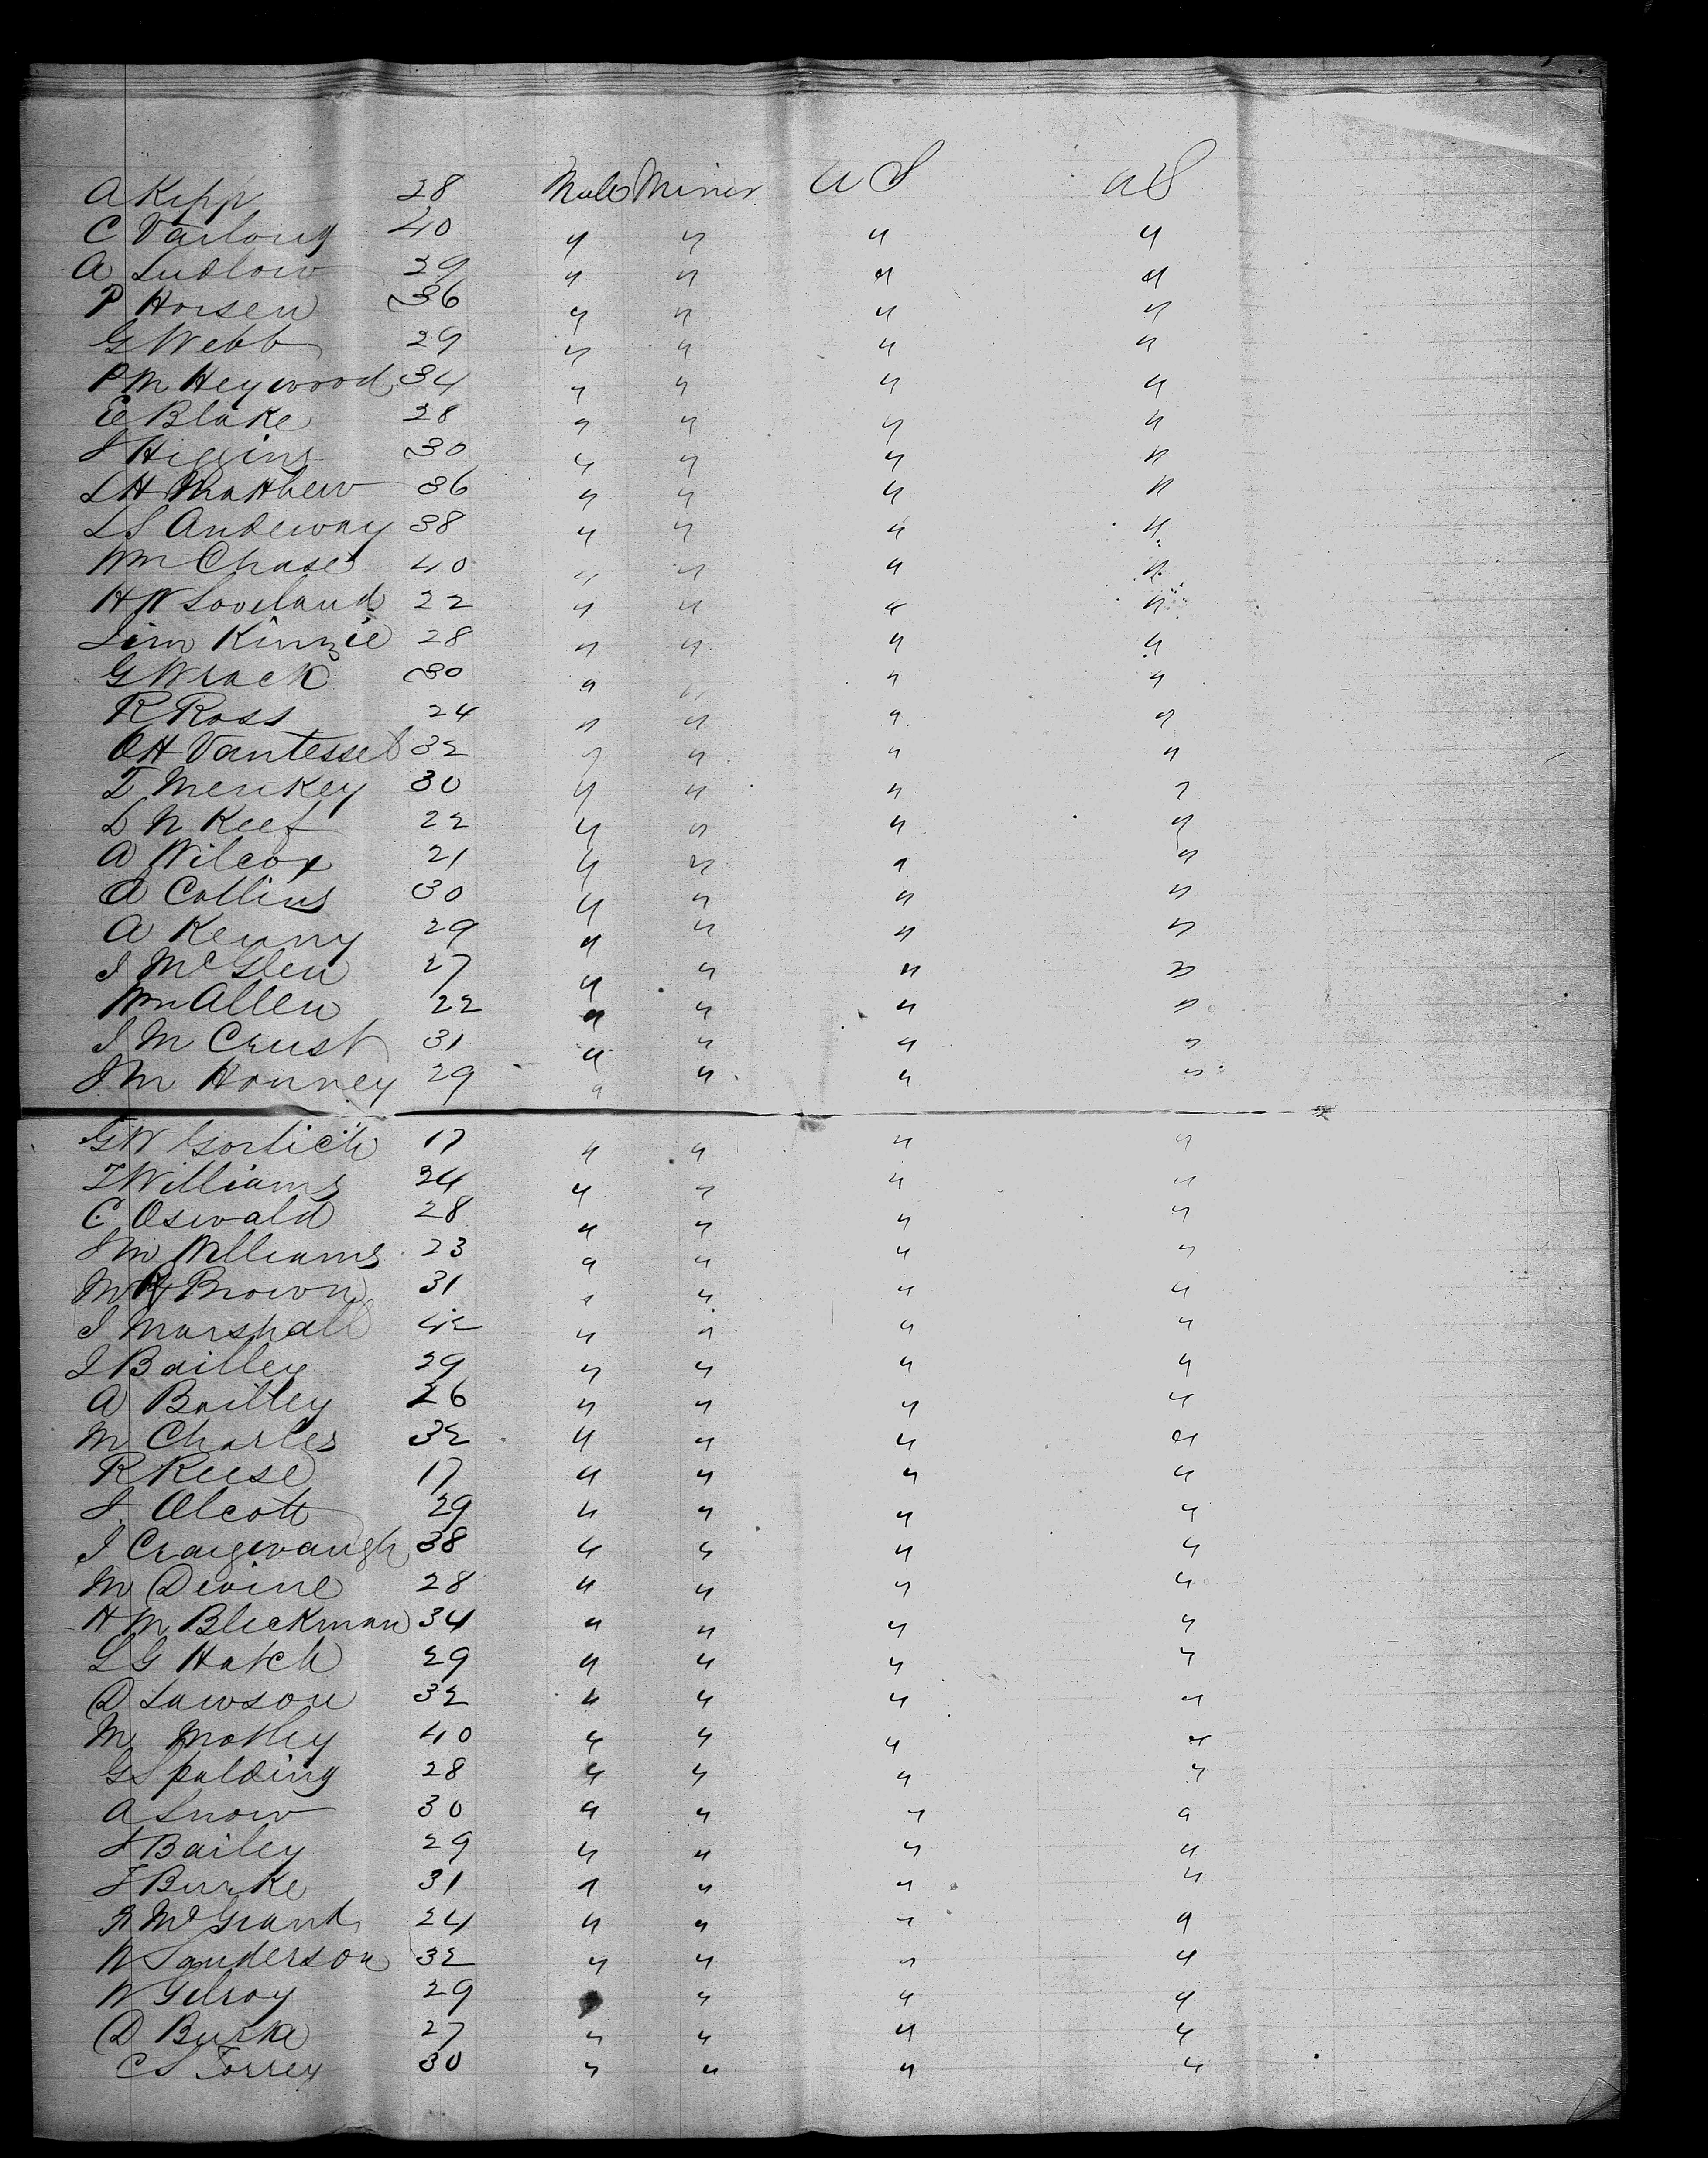 A Kipp 28 Male Miner U S U S
C Varlong 40 " " " "
A Ludlow 29 " " " "
P Horsen 36 " " " "
G Webb 29 " " " "
P M Heywood 34 " " " "
E Blake 28 " " " "
J Higgins 30 " " " "
L H Matthew 36 " " " "
L S Andeway 38 " " " "
Wm Chase 40 " " " "
H W Loveland 22 " " " "
Sim Kinzie 28 " " " "
G Wrack 30 " " " "
R Ross 24 " " " "
O H Vantessel 32 " " " "
T Menkey 30 " " " "
D N Keef 22 " " " "
A Wilcox 21 " " " "
A Collins 30 " " " "
A Kenny 29 " " " "
J McGlen 27 " " " "
Wm Allen 22 " " " "
J M Crust 31 " " " "
J M Honney 29 " " " "
G W Gorlich 17 " " " "
T Williams 24 " " " "
C Oswald 28 " " " "
J M Williams 23 " " " "
M Brown 31 " " " "
J Marshall 42 " " " "
J Bailley 29 " " " "
A Bailley 26 " " " "
M Charles 32 " " " "
R Reese 17 " " " "
J Alcott 29 " " " "
J Craigwaugh 38 " " " "
M Devine 28 " " " "
H M Bleckman 34 " " " "
L G Hatch 29 " " " "
D Lawson 32 " " " "
M Motley 40 " " " "
G Spalding 28 " " " "
A Snow 30 " " " "
J Bailey 29 " " " "
J Burke 31 " " " "
R McGrand 24 " " " "
W Sanderson 32 " " " "
W Gilroy 29 " " "
D Burke 27 " " " "
C S Torrey 30 " " " "